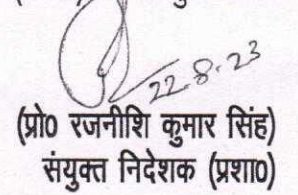 22-8-23
(प्रो0 रजनीशि कुमार सिंह)
संयुक्त निदेशक (प्रशा0)